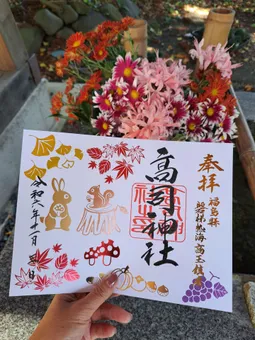 奉拝
福島縣
磐梯熱海高玉鎮
高司神社
令和六年十一月